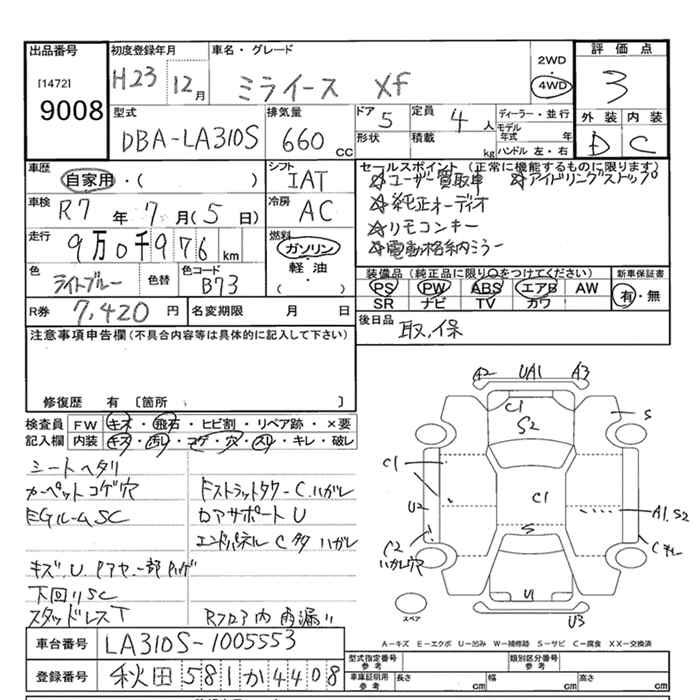 出品番号 初度登録年月 車名・グレード 2WD 評価点
[1472] H23 12月 ミライース Xf 4WD 3
9008 型式 排気量 ドア 定員 ディーラー・並行 外装 内装
DBA-LA310S 660cc 5 4人 モデル年式 年 D C
形状 積載 kg ハンドル 左・右
車歴 シフト セールスポイント (正常に機能するものに限ります)
自家用・( ) IAT ☆ユーザー買取車 ☆アイドリングストップ
車検 R7年7月(5日) 冷房 AC ☆純正オーディオ
走行 9万0千976km 燃料 ガソリン ☆リモコンキー
軽油 ☆電動格納ミラー
色 ライトブルー 色替 色コード B73 ( )
装備品(純正品に限り○をつけてください) 新車保証書
PS PW ABS エアB AW 有・無
SR ナビ TV カワ
R券 7,420円 名変期限 月 日
後日品 取、保
注意事項申告欄(不具合内容等は具体的に記入して下さい)
修復歴 有 [箇所
検査員記入欄 FW キズ・飛石・ヒビ割・リペア跡・×要
内装 キズ・汚レ・コゲ・穴・スレ・キレ・破レ
シートヘタリ
カーペットコゲ穴 Fストラットタワ-C、ハガレ
EGルームSC ロアサポートU
エンドパネルC多ハガレ
下回りSC
スタッドレスT Rフロア内雨漏リ
A2 UA1 A3
C1
S2
S
C1
C1
U2
A1、S2
C2
ハガレ穴
S
U1
U3
スペア
A-キズ E-エクボ U-凹み W-補修跡 S-サビ C-腐食 XX-交換済
車台番号 LA310S-1005553
登録番号 秋田 581 か 4408
型式指定番号 参考 類別区分番号 参考
車庫証明用 参考 長さ cm 幅 cm 高さ cm